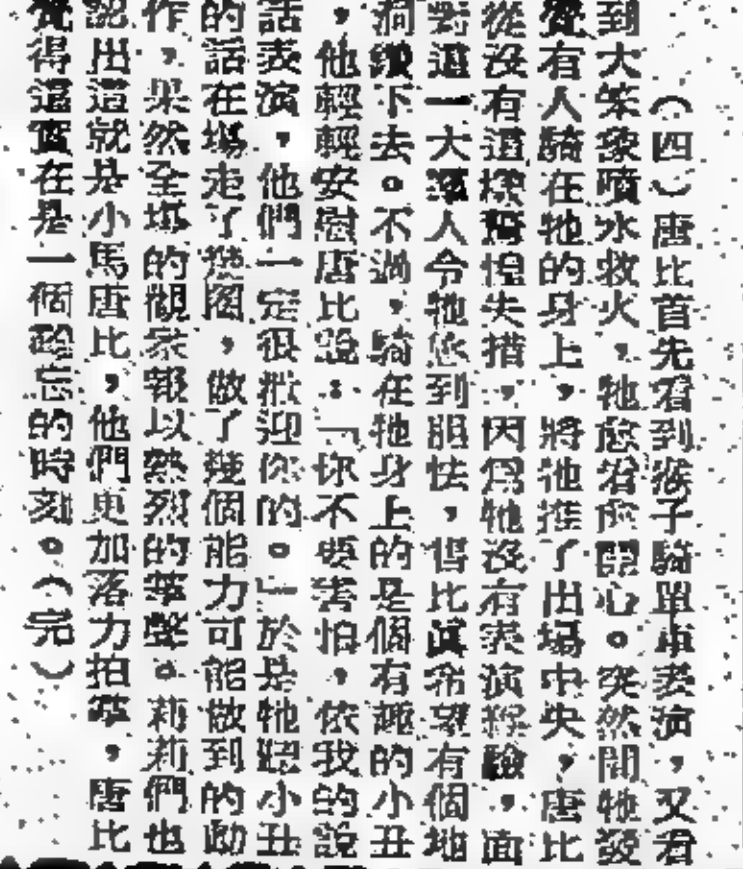 （四）唐比首先看到猴子騎單車表演，又看
到大笨象噴水救火，牠愈看愈開心。突然間牠發
覺有人騎在牠的身上，將牠推了出場中央，唐比
從沒有這樣驚惶失措，因爲牠沒有表演經驗，面
對這一大羣人令牠感到膽怯，唐比眞希望有個地
洞鑽下去。不過，騎在牠身上的是個有趣的小丑
，他輕輕安慰唐比說：「你不要害怕，依我的說
話表演，他們一定很歡迎你的。」於是牠聽小丑
的話在場走了幾圈，做了幾個能力可能做到的動
作，果然全場的觀衆報以熱烈的掌聲。莉莉們也
認出這就是小馬唐比，他們更加落力拍掌，唐比
覺得這實在是一個難忘的時刻。（完）